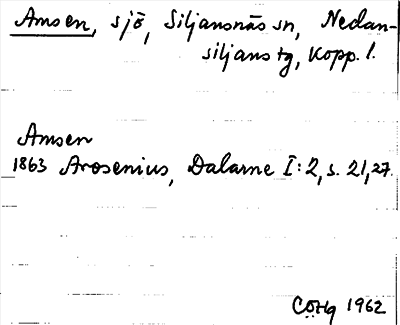 Amsen, sjö, Siljansnäs sn, Nedan-
siljans tg, Kopp. l.
Amsen
1863 Arosenius, Dalarne I:2, s. 21, 27.
1962